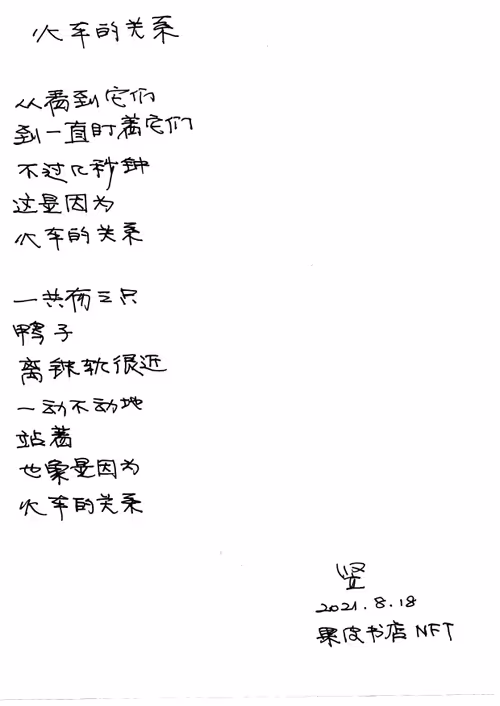 火车的关系
从看到它们
到一直盯着它们
不过几秒钟
这是因为
火车的关系
一共有三只
鸭子
离铁轨很近
一动不动地
站着
也算是因为
火车的关系
竖
2021.8.18
果皮书店NFT